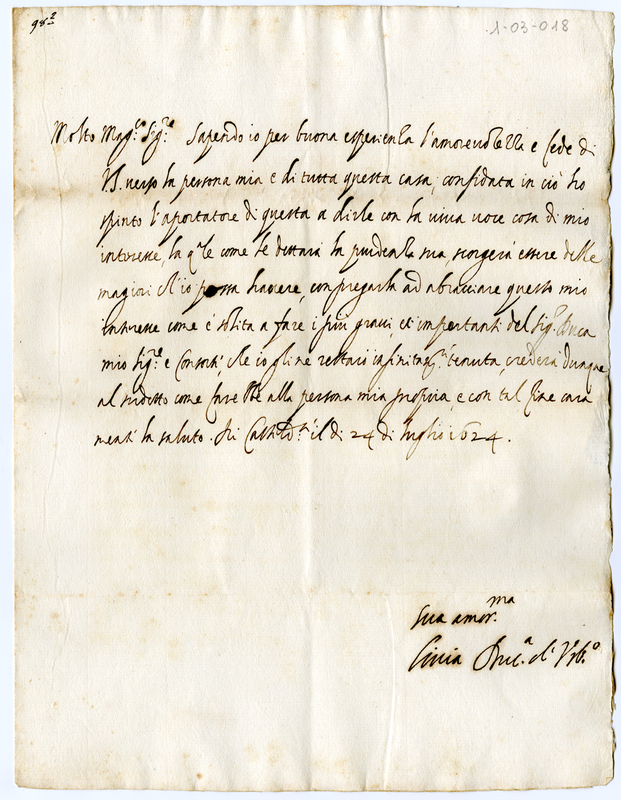 98²
1-03-018
Molto Mag.co Sig.re Sapendo io per buona esperienza l'amorevolezza e fede di
VS. verso la persona mia e di tutta questa casa, confidata in ciò ho
spinto l'aportatore di questa a dirle con la viva voce cosa di mio
interesse, la q.le come le dettarà la prudenza sua, scorgerà essere delle
magiori ch'io possa havere, con pregarla ad abracciare questo mio
interesse come è solita a fare i più gravi, et importanti del Sig.r Duca
mio Sig.re e Consorte che io gli ne restarò infinitam.te tenuta, crederà dunque
al sudetto come farebbe alla persona mia propria, e con tal fine cara
mente la saluto. Di Castel D.te il dì 24 di luglio 1624.
Sua amor.ma
Livia Duc.a d'Urb.o